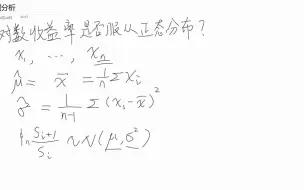 分析
对数收益率是否服从正态分布？
x₁, ⋯, xₙ
μ̂ = x̄ = 1/n Σ xᵢ
σ̂² = 1/(n-1) Σ (xᵢ - x̄)²
ln Sᵢ₊₁/Sᵢ ~ N(μ, σ²)